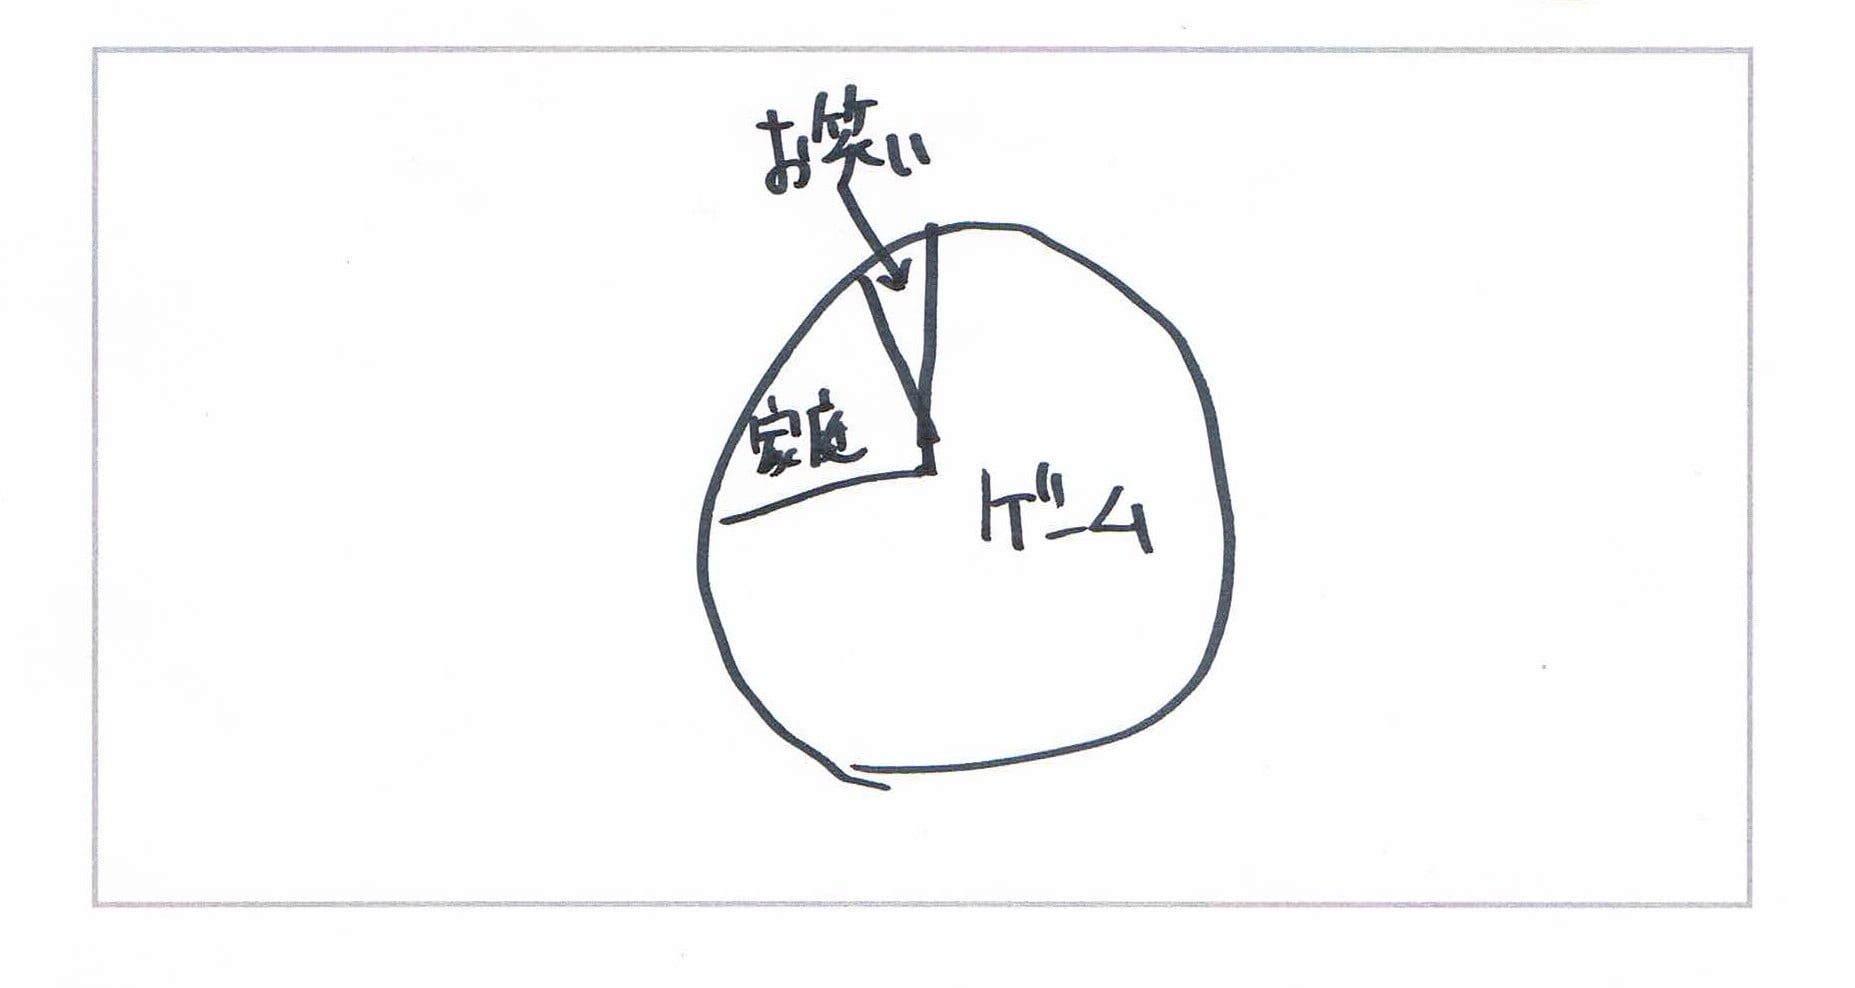 お笑い
家庭
ゲーム